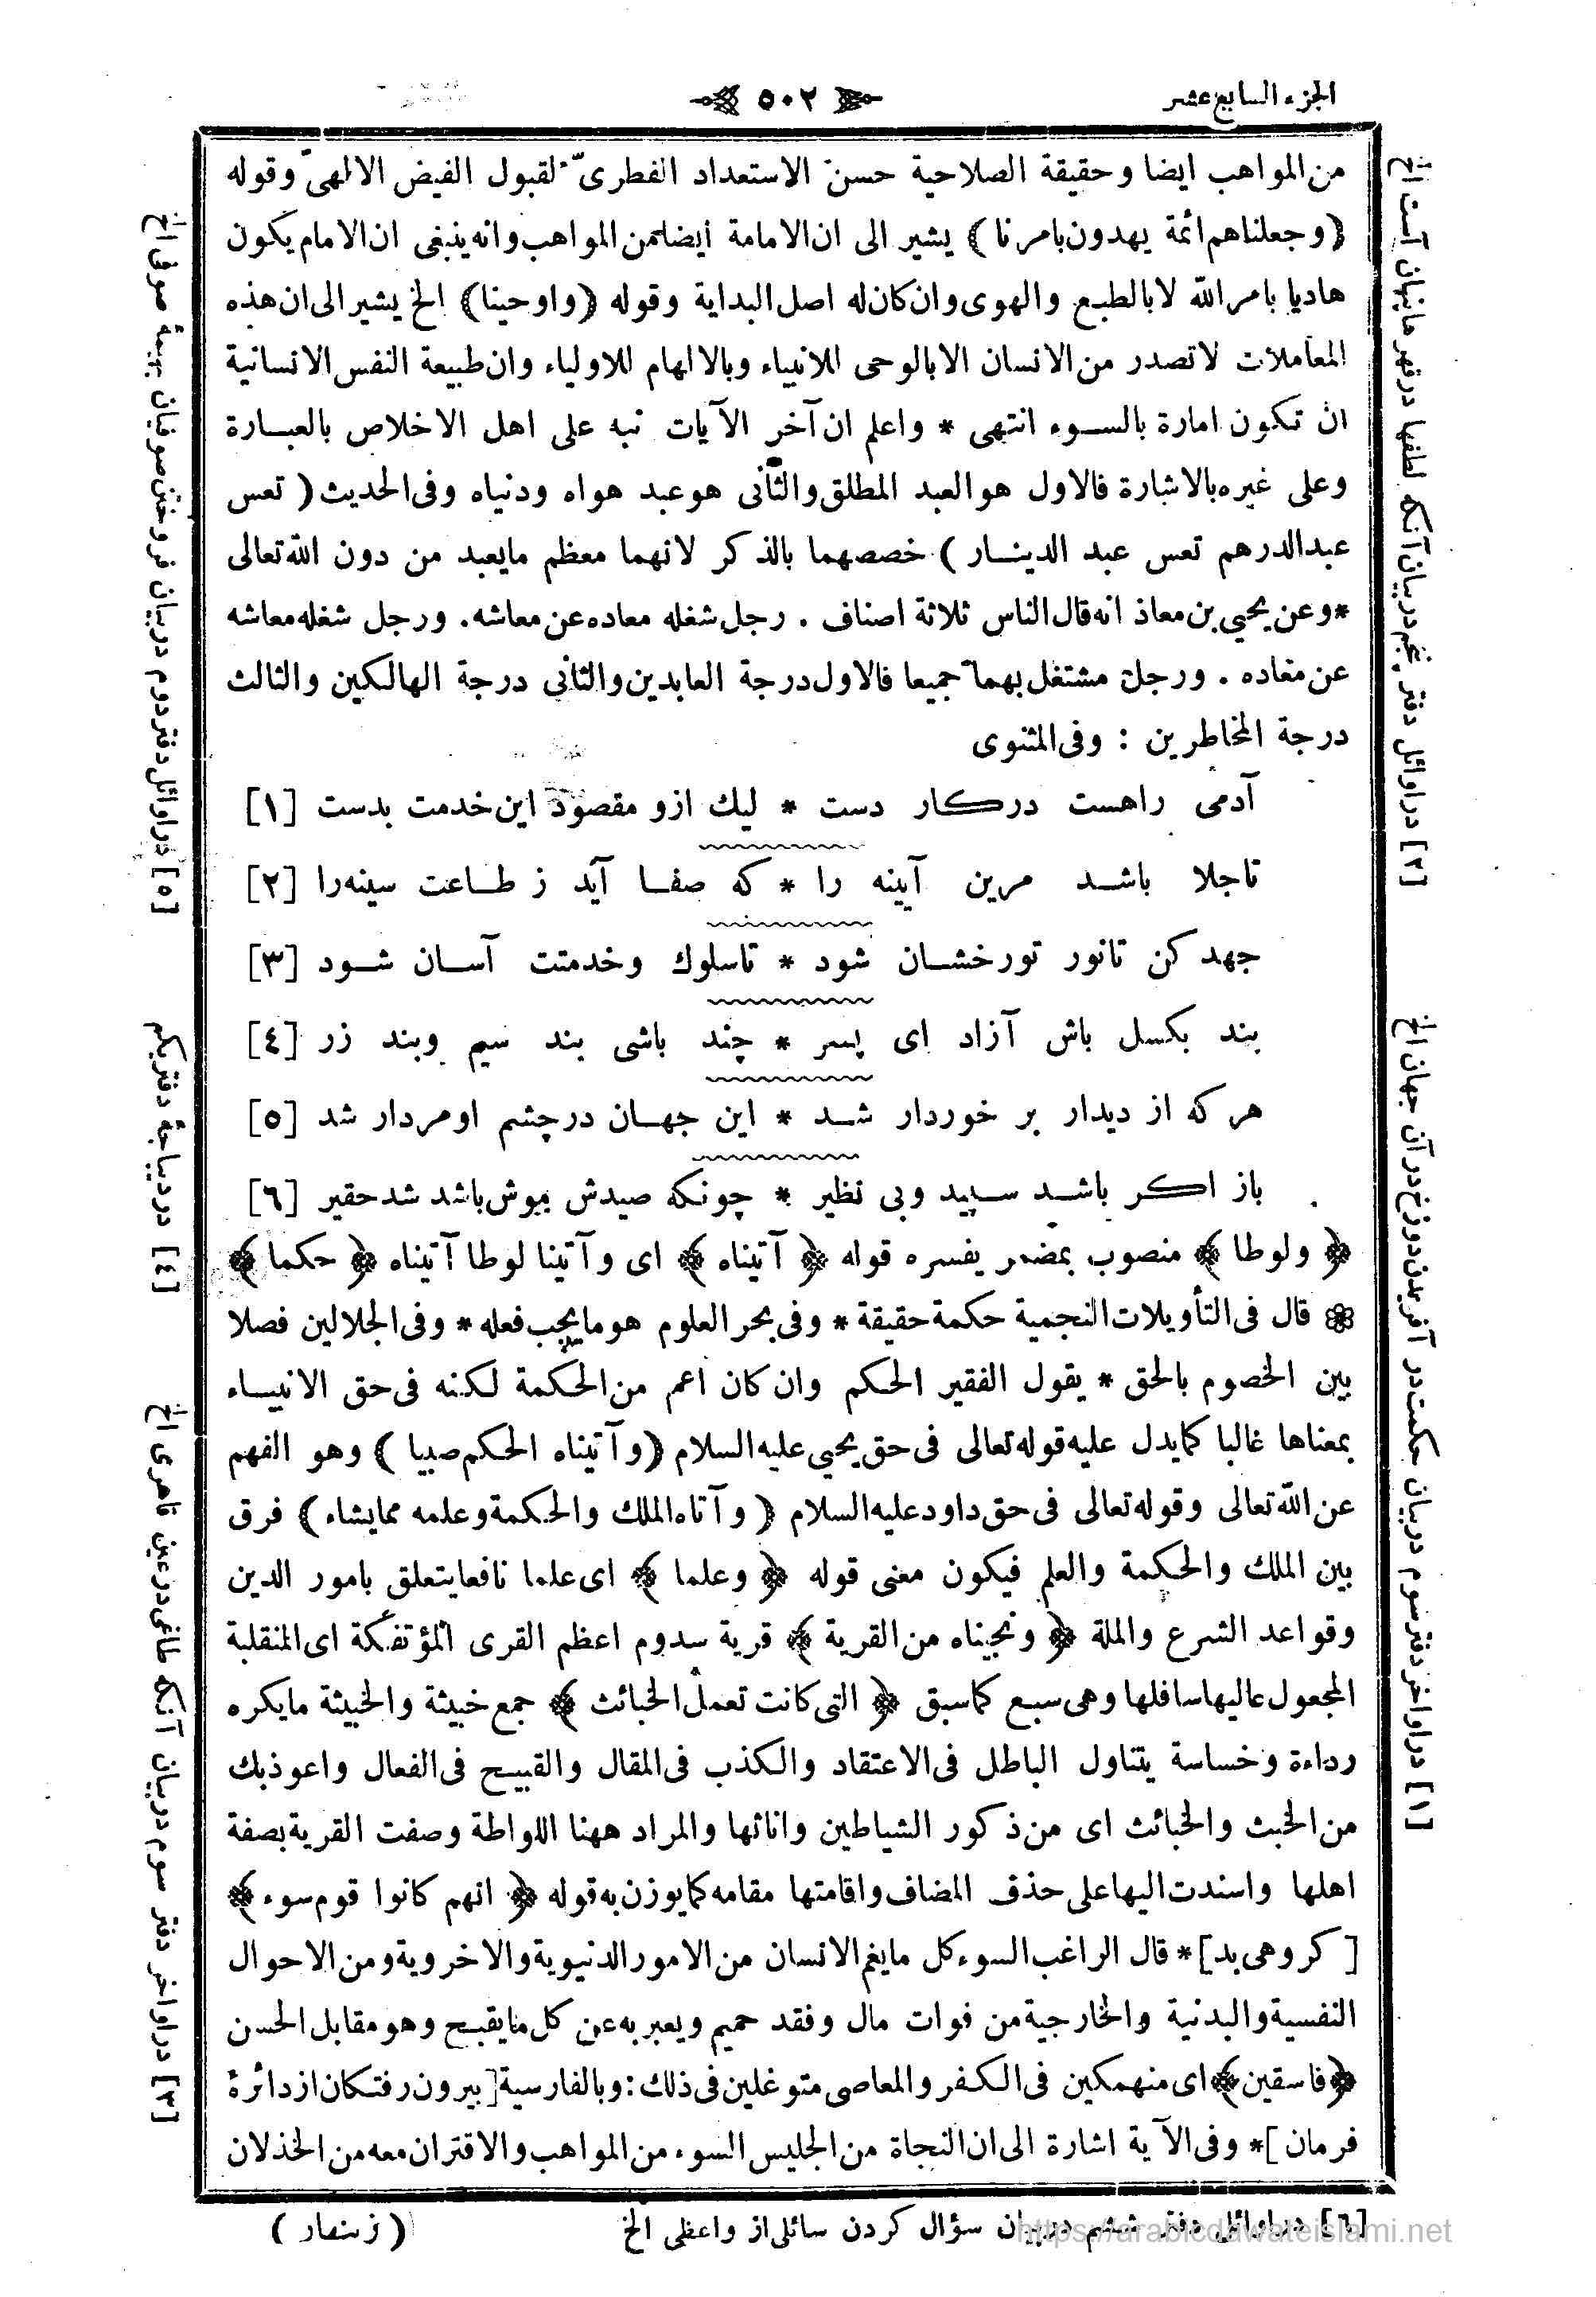 الجزء السابع عشر
٥٠٢
من المواهب ايضا وحقيقة الصلاحية حسن الاستعداد الفطرى لقبول الفيض الالهى وقوله
(وجعلناهم أئمة يهدون بامرنا) يشير الى ان الامامة ايضا من المواهب وانه ينبغى ان الامام يكون
هاديا بامر الله لا بالطبع والهوى وان كان له اصل البداية وقوله (واوحينا) الخ يشير الى ان هذه
المعاملات لا تصدر من الانسان الا بالوحى للانبياء وبالالهام للاولياء وان طبيعة النفس الانسانية
ان تكون امارة بالسوء انتهى * واعلم ان آخر الآيات نبه على اهل الاخلاص بالعبارة
وعلى غيره بالاشارة فالاول هو العبد المطلق والثانى هو عبد هواه ودنياه وفى الحديث ( تعس
عبد الدرهم تعس عبد الدينار ) خصصهما بالذكر لانهما معظم ما يعبد من دون الله تعالى
* وعن يحيى بن معاذ انه قال الناس ثلاثة اصناف . رجل شغله معاده عن معاشه . ورجل شغله معاشه
عن معاده . ورجل مشتغل بهما جميعا فالاول درجة العابدين والثانى درجة الهالكين والثالث
درجة المخاطرين : وفى المثنوى
آدمى راهست دركار دست * ليك ازو مقصود اين خدمت بدست [١]
تاجلا باشد مرين آيينه را * كه صفا آيد ز طاعت سينه را [٢]
جهد كن تانور تورخشان شود * تاسلوك وخدمتت آسان شود [٣]
بند بكسل باش آزاد اى پسر * چند باشى بند سيم وبند زر [٤]
هركه از ديدار بر خوردار شد * اين جهان درچشم اومردار شد [٥]
باز اكر باشد سپيد وبى نظير * چونكه صيدش موش باشد شد حقير [٦]
﴿ ولوطا ﴾ منصوب بمضمر يفسره قوله ﴿ آتيناه ﴾ اى وآتينا لوطا آتيناه ﴿ حكما ﴾
قال فى التأويلات النجمية حكمة حقيقة * وفى بحر العلوم هو ما يجب فعله * وفى الجلالين فصلا
بين الخصوم بالحق * يقول الفقير الحكم وان كان اعم من الحكمة لكنه فى حق الانبياء
بمعناها غالبا كما يدل عليه قوله تعالى فى حق يحيى عليه السلام (وآتيناه الحكم صبيا ) وهو الفهم
عن الله تعالى وقوله تعالى فى حق داود عليه السلام ( وآتاه الملك والحكمة وعلمه مما يشاء ) فرق
بين الملك والحكمة والعلم فيكون معنى قوله ﴿ وعلما ﴾ اى علما نافعا يتعلق بامور الدين
وقواعد الشرع والملة ﴿ ونجيناه من القرية ﴾ قرية سدوم اعظم القرى المؤتفكة اى المنقلبة
المجعول عاليها سافلها وهى سبع كما سبق ﴿ التى كانت تعمل الخبائث ﴾ جمع خبيثة والخبيثة ما يكره
رداءة وخساسة يتناول الباطل فى الاعتقاد والكذب فى المقال والقبيح فى الفعال واعوذ بك
من الخبث والخبائث اى من ذكور الشياطين واناثها والمراد ههنا اللواطة وصفت القرية بصفة
اهلها واسندت اليها على حذف المضاف واقامتها مقامه كما يوزن به قوله ﴿ انهم كانوا قوم سوء ﴾
[ كروهى بد ] * قال الراغب السوء كل ما يغم الانسان من الامور الدنيوية والاخروية ومن الاحوال
النفسية والبدنية والخارجية من فوات مال وفقد حميم ويعبر به عن كل ما يقبح وهو مقابل الحسن
﴿فاسقين﴾ اى منهمكين فى الكفر والمعاصى متوغلين فى ذلك : وبالفارسية [ بيرون رفتكان از دائرۀ
فرمان ] * وفى الآية اشارة الى ان النجاة من الجليس السوء من المواهب والاقتران معه من الخذلان
[٦] در اوائل دفتر ششم در بيان سؤال كردن سائلى از واعظى الخ
( زينهار )
[١] در اواخر دفتر سوم در بيان حكمت در آفريدن دوزخ در آن جهان الخ
[٢] در اوائل دفتر پنجم در بيان آنكه لطفها در قهرها پنهان آست الخ
[٣] در اواخر دفتر سوم در بيان آنكه طاغى در عين قاهرى الخ
[٤] در ديباجۀ دفتر يكم
[٥] در اوائل دفتر دوم در بيان فروختن صوفيان بهيمۀ صوفى الخ
https://arabicdawateislami.net